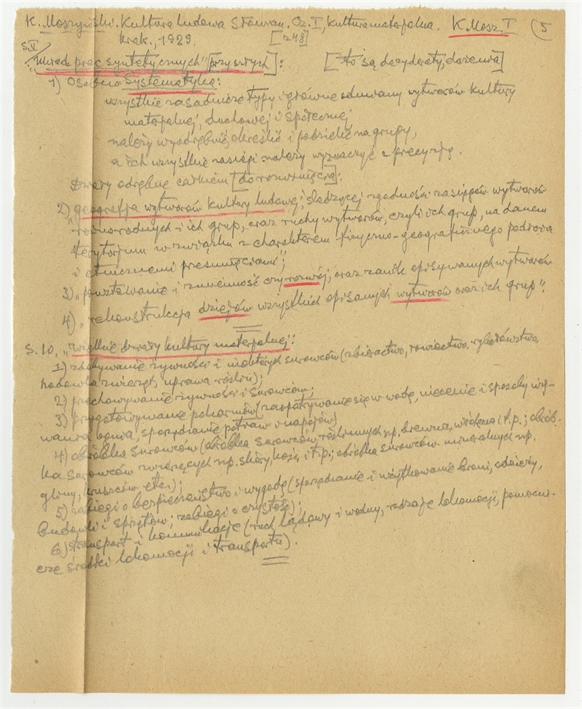 K. Moszyński. Kultura Ludowa Słowian. Cz. I, Kultura materjalna. K. Mosz. I (5
Krak., 1929.
s. V "układ prac syntetycznych" [przyszłych]: [to są dezyderaty,
1) Osobna systematyka:
wszystkie zasadnicze typy i główne odmiany wytworów kultury
materjalnej, duchowej i społecznej,
należy wyodrębnić, określić i podzielić na grupy,
a ich wszystkie zasięgi należy wyznaczyć z precyzją.
2) "geografja wytworów kultury ludowej, śledzącej zgodności zasięgów wytworów
różnorodnych i ich grup, oraz ruchy wytworów, czyli ich grup, na danem
terytorjum w związku z charakterem fizyczno-geograficznego podłoża
i etnicznemi przesunięciami";
3) "powstawanie i zmienność czy rozwój, oraz zanik opisywanych wytworów
4) "rekonstrukcja dziejów wszystkich opisanych wytworów oraz ich grup".
s. 10, "wielkie działy kultury materjalnej":
1) zdobywanie żywności i niektórych surowców (zbieractwo, łowiectwo, rybołówstwo,
hodowla zwierząt, uprawa roślin);
2) przechowywanie żywności i surowców;
3) przygotowywanie pokarmów (zaopatrywanie się w wodę, niecenie i sposoby uży-
wania ognia, sporządzanie potraw i napojów)
4) obróbka surowców (obróbka surowców roślinnych np. drewna, włókna i t.p.; obrób-
ka surowców zwierzęcych np. skóry, kości i t.p.; obróbka surowców mineralnych np.
gliny, kruszców etc.);
5) zabiegi o bezpieczeństwo i wygodę (sporządzanie i użytkowanie broni, odzieży,
budowli i sprzętów; zabiegi o czystość);
6) transport i komunikacje (ruch lądowy i wodny, rodzaje lokomocji, pomocni-
cze środki lokomocji i transportu).